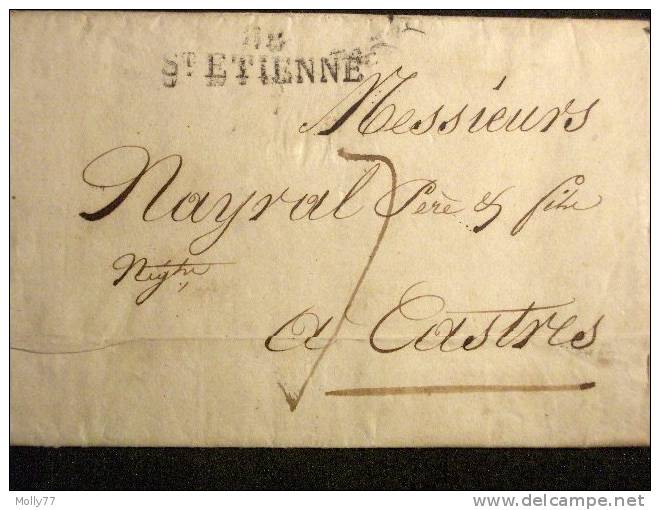 ST ETIENNE
Messieurs
Nayral Père & fils
Negts
7
a Castres
Molly77
www.delcampe.net